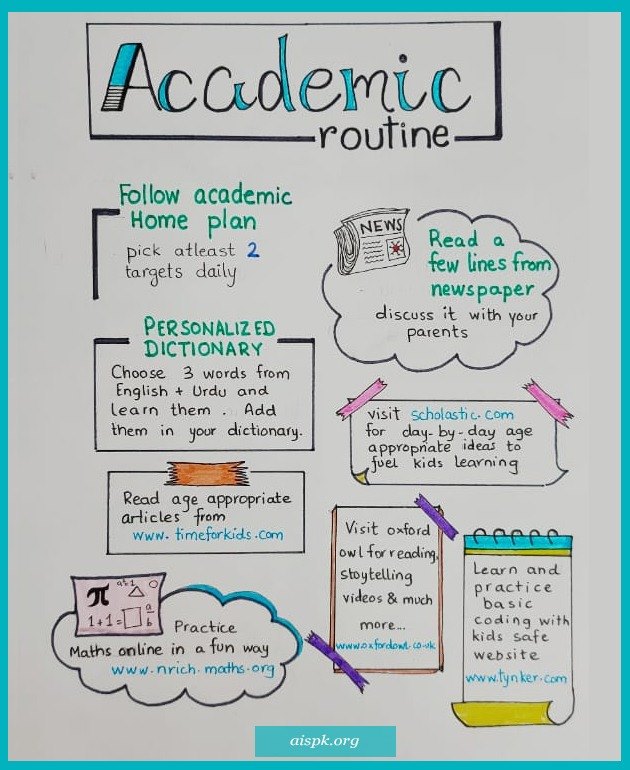 Academic
routine
Follow academic
Home plan
pick atleast 2
targets daily
NEWS
Read a
few lines from
newspaper
discuss it with your
parents
PERSONALIZED
DICTIONARY
Choose 3 words from
English + Urdu and
learn them . Add
them in your dictionary.
visit scholastic.com
for day-by-day age
appropriate ideas to
fuel kids learning
Read age appropriate
articles from
www.timeforkids.com
Visit oxford
owl for reading,
stoytelling
videos & much
more...
www.oxfordowl.co.uk
Learn and
practice
basic
coding with
kids safe
website
www.tynker.com
π
1+1=
a
b
Practice
Maths online in a fun way
www.nrich.maths.org
aispk.org